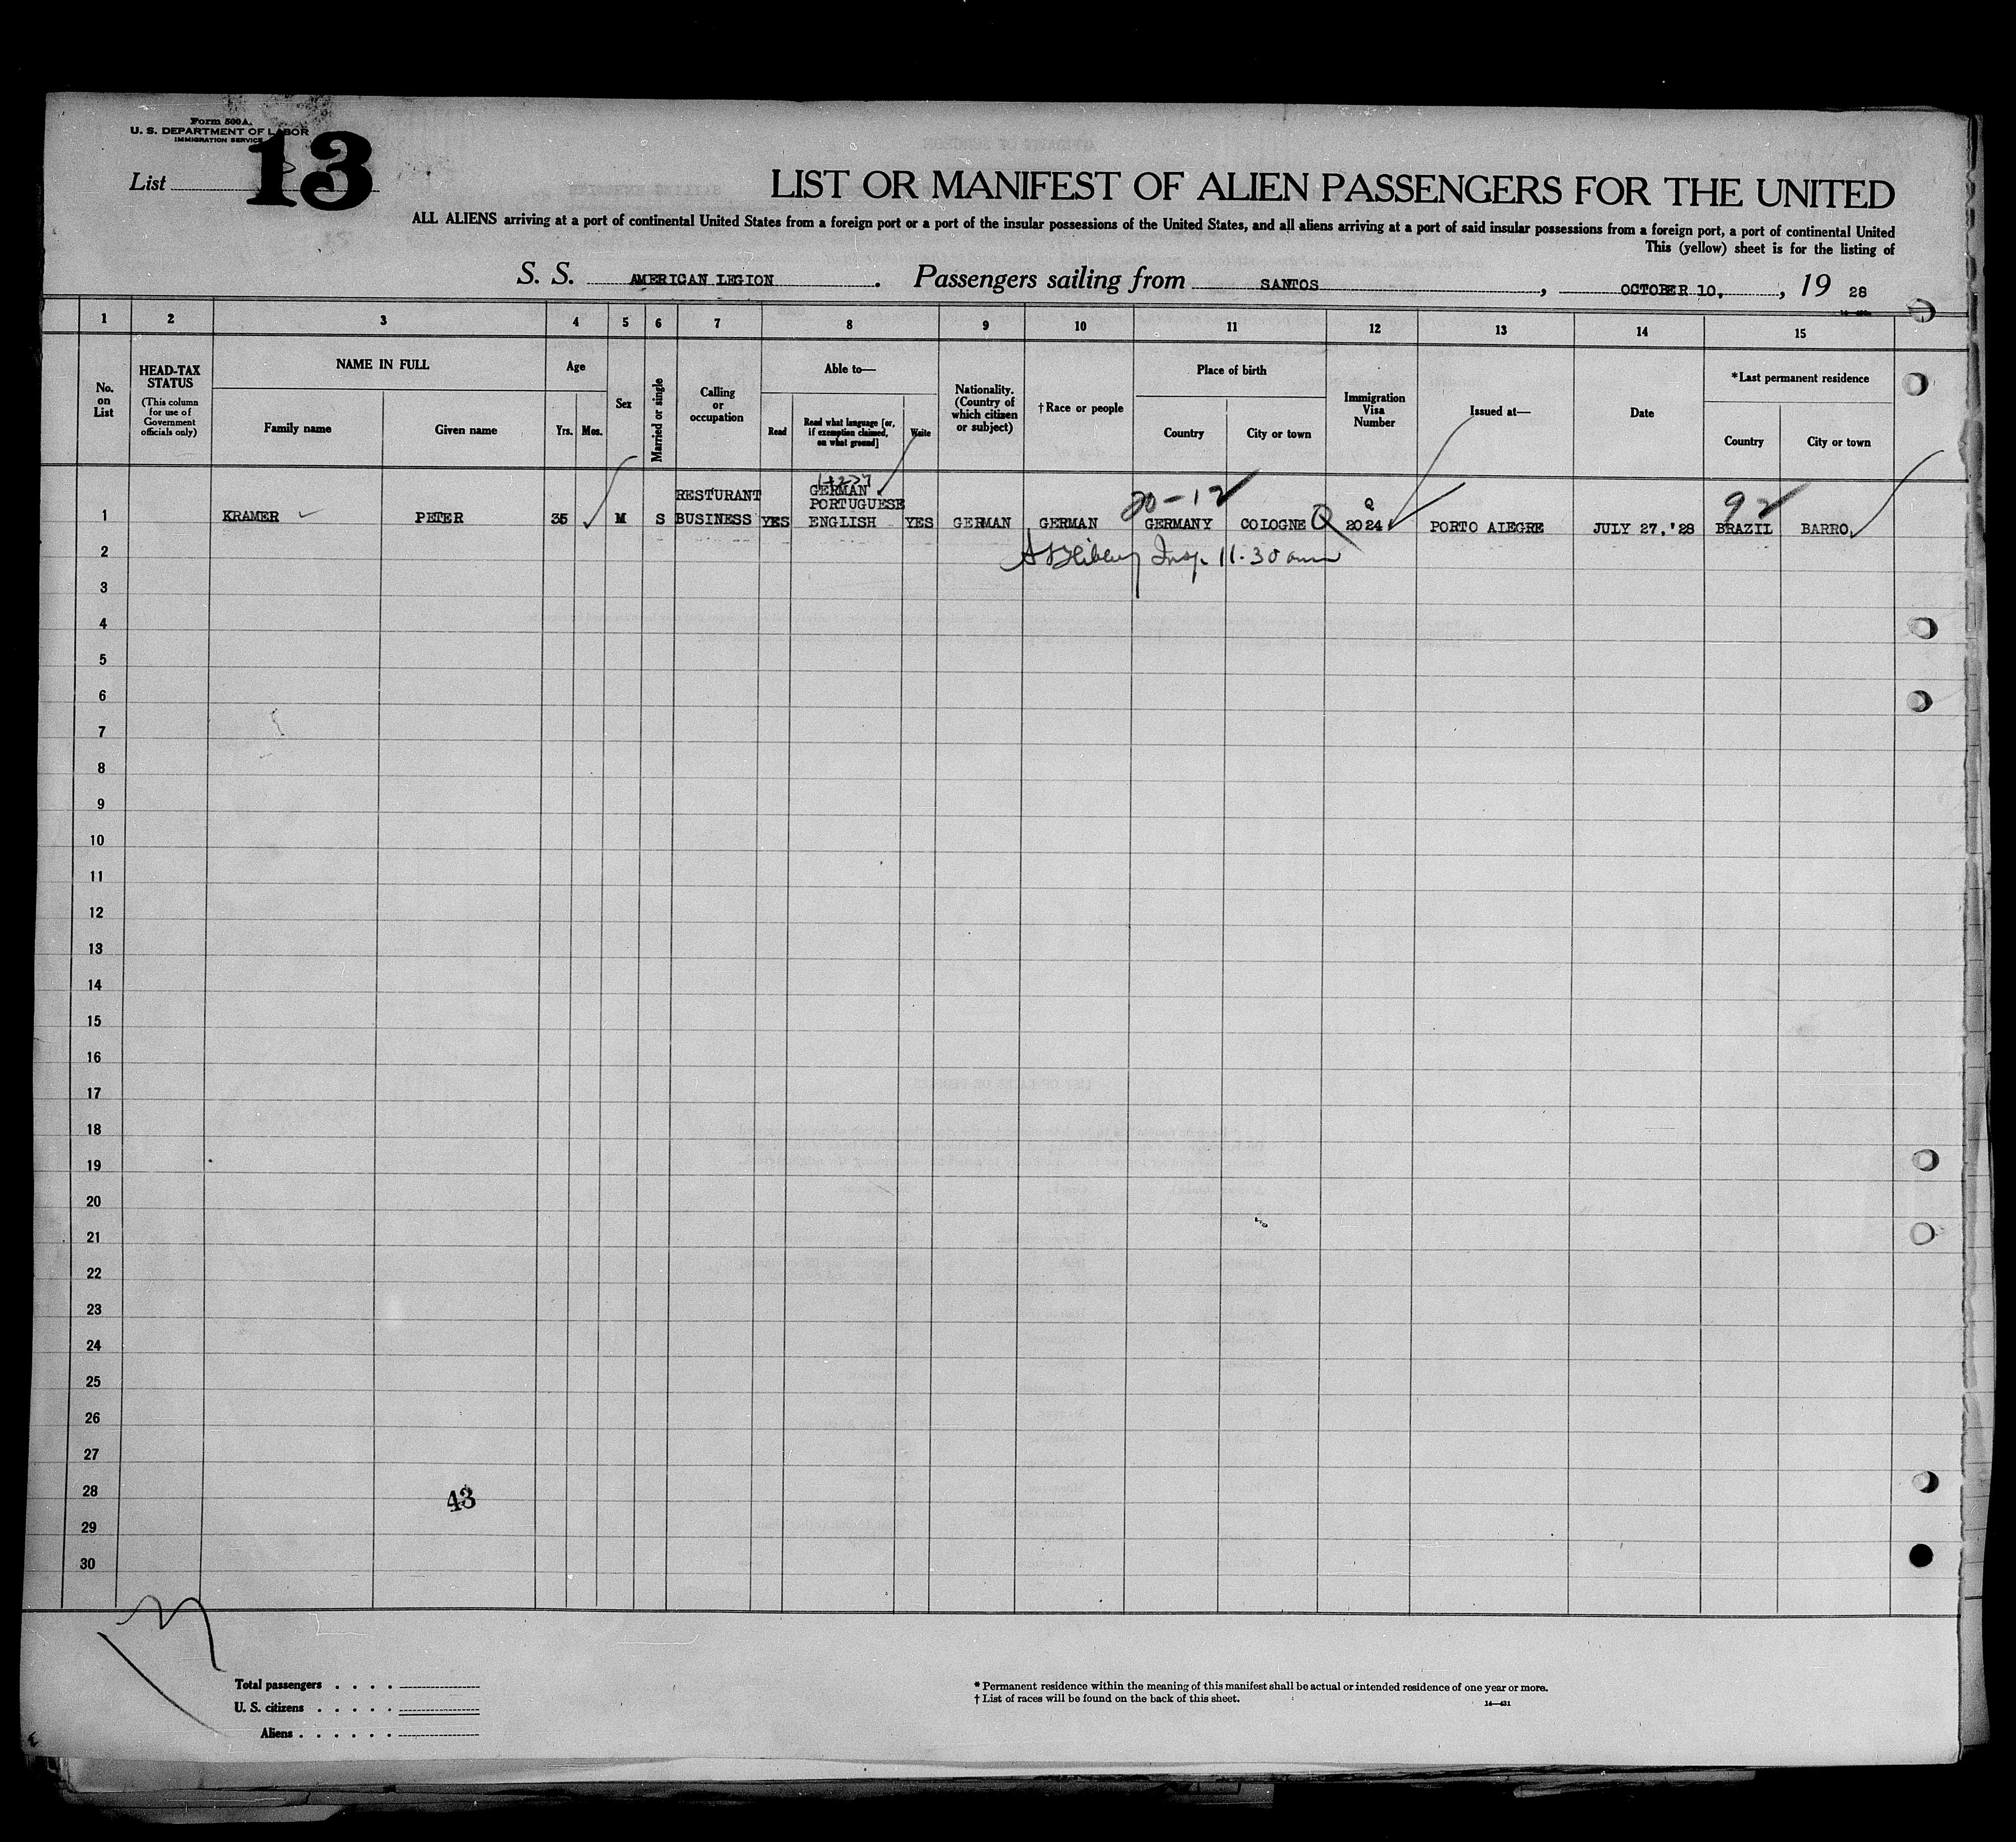 Form 500A.
U. S. DEPARTMENT OF LABOR
IMMIGRATION SERVICE
List 13
LIST OR MANIFEST OF ALIEN PASSENGERS FOR THE UNITED
ALL ALIENS arriving at a port of continental United States from a foreign port or a port of the insular possessions of the United States, and all aliens arriving at a port of said insular possessions from a foreign port, a port of continental United
This (yellow) sheet is for the listing of
S. S. AMERICAN LEGION. Passengers sailing from SANTOS, OCTOBER 10, , 19 28
1 2 3 4 5 6 7 8 9 10 11 12 13 14 15
No. on List
HEAD-TAX STATUS
(This column for use of Government officials only)
NAME IN FULL
Family name Given name
Age
Yrs. Mos.
Sex
Married or single
Calling or occupation
Able to—
Read
Read what language [or, if exemption claimed, on what ground]
Write
Nationality. (Country of which citizen or subject)
† Race or people
Place of birth
Country City or town
Immigration Visa Number
Issued at—
Date
*Last permanent residence
Country City or town
RESTURANT GERMAN 20-12 Q 92
PORTUGUESE
1 KRAMER PETER 35 M S BUSINESS YES ENGLISH YES GERMAN GERMAN GERMANY COLOGNE Q 2024 PORTO ALEGRE JULY 27, '28 BRAZIL BARRO,
2 Insp. 11.30 am
3
4
5
6
7
8
9
10
11
12
13
14
15
16
17
18
19
20
21
22
23
24
25
26
27
28 43
29
30
Total passengers . . . .
U. S. citizens . . . . .
Aliens . . . . . .
* Permanent residence within the meaning of this manifest shall be actual or intended residence of one year or more.
† List of races will be found on the back of this sheet.
14—431